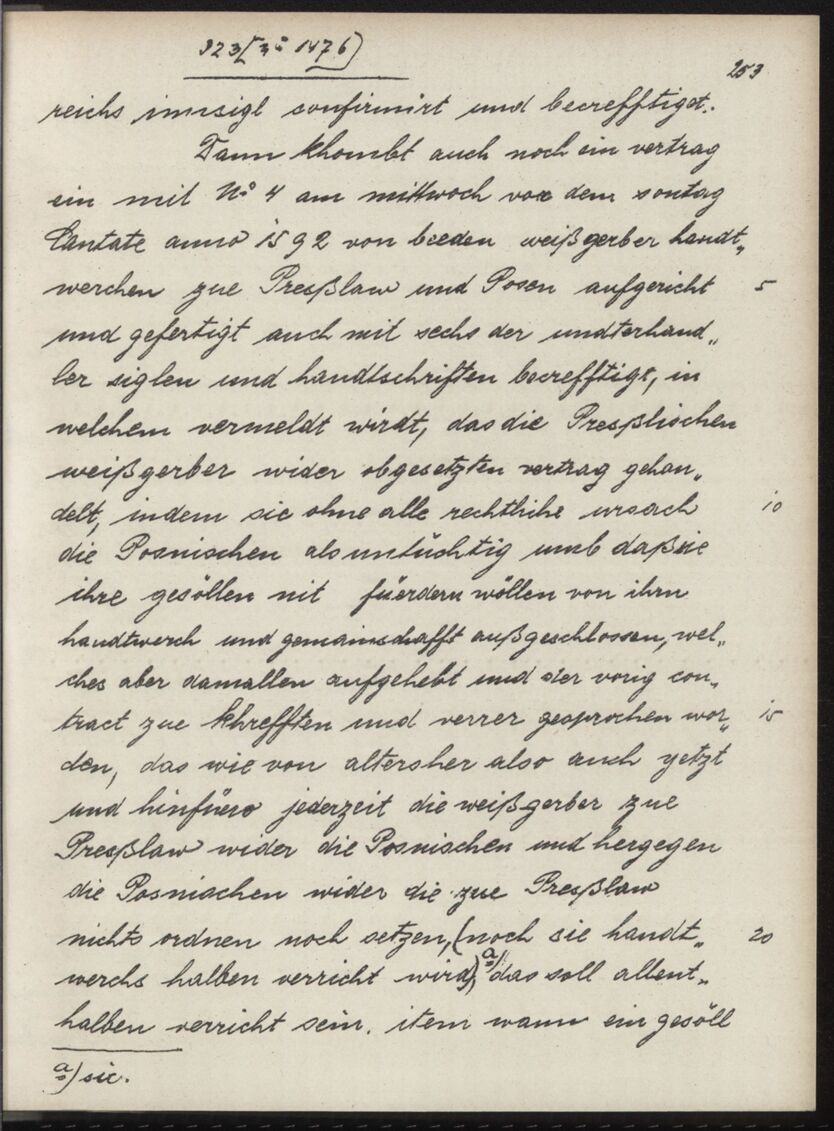 923 [3° 1476]
253
reichs innsigl confirmirt und becrefftiget.
Dann khombt auch noch ein vertrag
ein mit No 4 am mittwoch vor dem sontag
Cantate anno 1592 von beeden weißgerber handt„
werchen zue Preßlaw und Posen aufgericht 5
und gefertigt auch mit sechs der undterhand„
ler siglen und handtschriften becrefftigt, in
welchem vermeldt wirdt, das die Preßlischen
weißgerber wider obgesetzten vertrag gehan„
delt, indem sie ohne alle rechtliche ursach 10
die Posnischen als untüchtig umb daß sie
ihre gesöllen nit füerdern wöllen von ihrn
handtwerch und gemainschafft außgeschlossen, wel„
ches aber damallen aufgehebt und der vorig con„
tract zue khrefften und verrer gesprochen wor„ 15
den, das wie von altersher also auch yetzt
und hinfüro jederzeit die weißgerber zue
Preßlaw wider die Posnischen und hergegen
die Posnischen wider die zue Preßlaw
nichts ordnen noch setzen, (noch sie handt„ 20
werchs halben verricht wird), a) das soll allent„
halben verricht sein. item wann ein gesöll
a) sic.